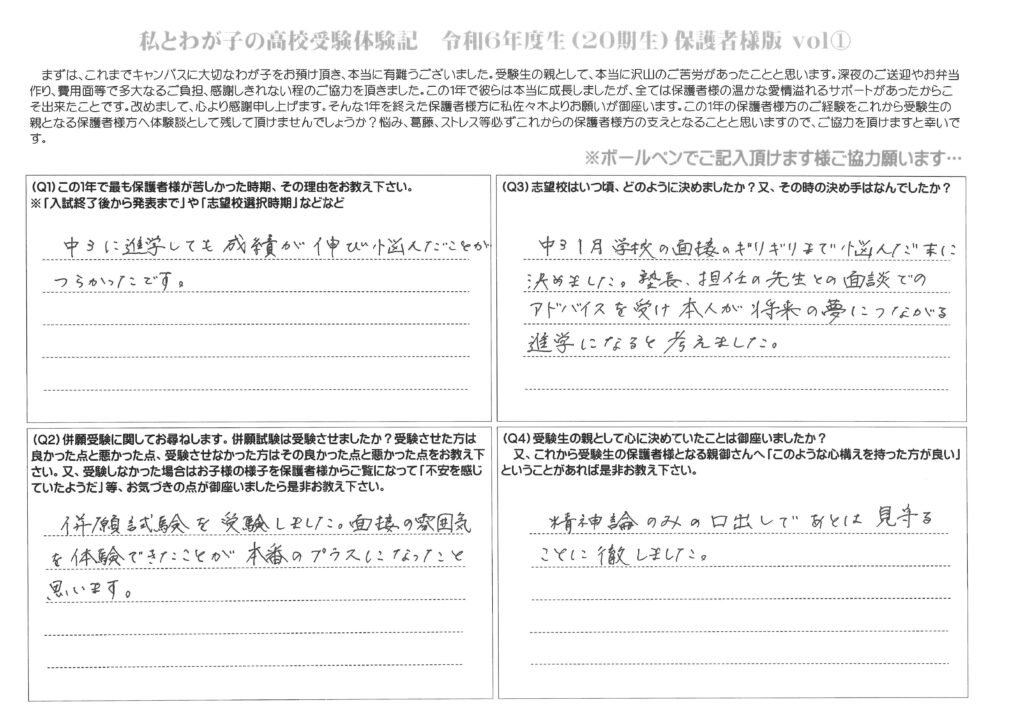 私とわが子の高校受験体験記　令和6年度生（20期生）保護者様版 vol①
まずは、これまでキャンバスに大切なわが子をお預け頂き、本当に有難うございました。受験生の親として、本当に沢山のご苦労があったことと思います。深夜のご送迎やお弁当
作り、費用面等で多大なるご負担、感謝しきれない程のご協力を頂きました。この1年で彼らは本当に成長しましたが、全ては保護者様の温かな愛情溢れるサポートがあったからこ
そ出来たことです。改めまして、心より感謝申し上げます。そんな1年を終えた保護者様方に私佐々木よりお願いが御座います。この1年の保護者様方のご経験をこれから受験生の
親となる保護者様方へ体験談として残して頂けませんでしょうか？悩み、葛藤、ストレス等必ずこれからの保護者様方の支えとなることと思いますので、ご協力を頂けますと幸いで
す。
※ボールペンでご記入頂けます様ご協力願います…
（Q1）この1年で最も保護者様が苦しかった時期、その理由をお教え下さい。
※「入試終了後から発表まで」や「志望校選択時期」などなど
中3に進学しても成績が伸び悩んだことが
つらかったです。
（Q3）志望校はいつ頃、どのように決めましたか？又、その時の決め手はなんでしたか？
中3 1月 学校の面接のギリギリまで悩んだ末に
決めました。塾長、担任の先生との面談での
アドバイスを受け本人が将来の夢につながる
進学になると考えました。
（Q2）併願受験に関してお尋ねします。併願試験は受験させましたか？受験させた方は
良かった点と悪かった点、受験させなかった方はその良かった点と悪かった点をお教え下
さい。又、受験しなかった場合はお子様の様子を保護者様からご覧になって「不安を感じ
ていたようだ」等、お気づきの点が御座いましたら是非お教え下さい。
併願試験を受験しました。面接の雰囲気
を体験できたことが本番のプラスになったこと
思います。
（Q4）受験生の親として心に決めていたことは御座いましたか？
又、これから受験生の保護者様となる親御さんへ「このような心構えを持った方が良い」
ということがあれば是非お教え下さい。
精神論のみの口出しであとは見守る
ことに徹しました。